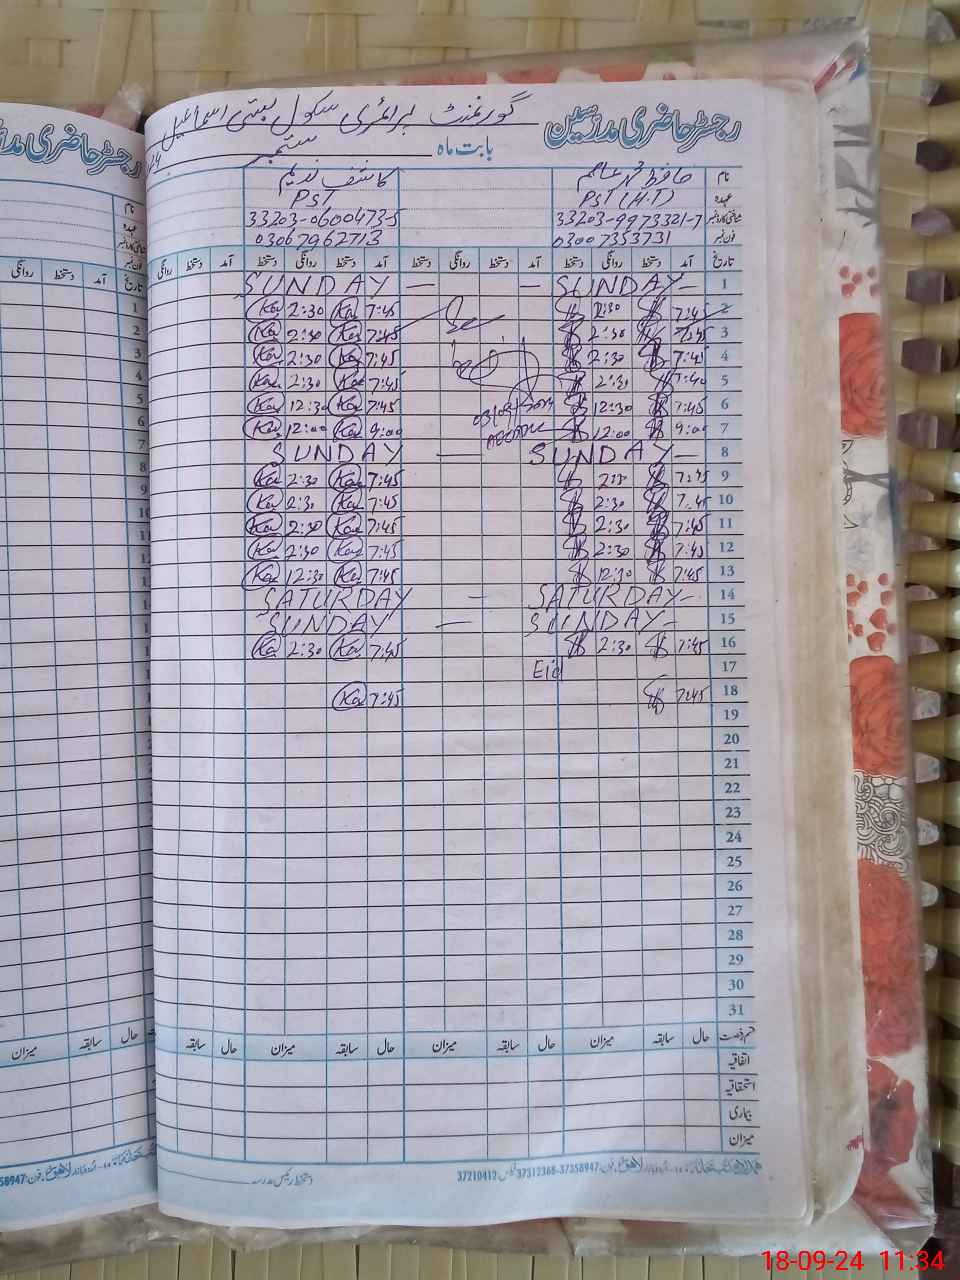 گورنمنٹ پرائمری سکول بستی اسماعیل
رجسٹر حاضری مدرسین
بابت ماہ ستمبر
نام حافظ محمد عالم کاشف ندیم
عہدہ PST (H.T) PST
شناختی کارڈ نمبر 33203-9973321-7 33203-0600473-5
فون نمبر 03007353731 03067962713
تاریخ آمد دستخط روانگی دستخط آمد دستخط روانگی دستخط آمد دستخط روانگی دستخط آمد دستخط روانگی
1 SUNDAY — SUNDAY —
2 7:45 2:30 7:45 Ka 2:30 Ka
3 7:45 2:30 7:45 Ka 2:30 Ka
4 7:45 2:30 7:45 Ka 2:30 Ka
5 7:40 2:30 7:45 Ka 2:30 Ka
6 7:45 12:30 7:45 Ka 12:30 Ka
7 9:00 12:00 9:00 Ka 12:00 Ka
8 SUNDAY — SUNDAY —
9 7:45 2:30 7:45 Ka 2:30 Ka
10 7:45 2:30 7:45 Ka 2:30 Ka
11 7:45 2:30 7:45 Ka 2:30 Ka
12 7:45 2:30 7:45 Ka 2:30 Ka
13 7:45 12:30 7:45 Ka 12:30 Ka
14 SATURDAY — SATURDAY —
15 SUNDAY — SUNDAY —
16 7:45 2:30 7:45 Ka 2:30 Ka
17 Eid
18 7:45 7:45 Ka
19
20
21
22
23
24
25
26
27
28
29
30
31
قسم رخصت حال سابقہ میزان حال سابقہ میزان حال سابقہ
اتفاقیہ
استحقاقیہ
بیماری
میزان
37210412 37312368-37358947
دستخط رئیس مدرسہ
رجسٹر حاضری مدر
نام
عہدہ
فون نمبر
تاریخ آمد دستخط روانگی
حال سابقہ میزان
18-09-24 11:34